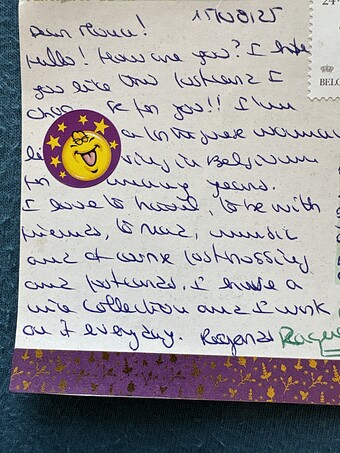 15/08/25
24
BELG
Dear !
Hello! How are you? I hope
you like the postcard I
for you!! I'm
a woman
living in Belgium
for many years.
I love to travel, to be with
friends, to read, music
and of course postcrossing
and postcards. I have a
nice collection and I work
on it everyday. Regards